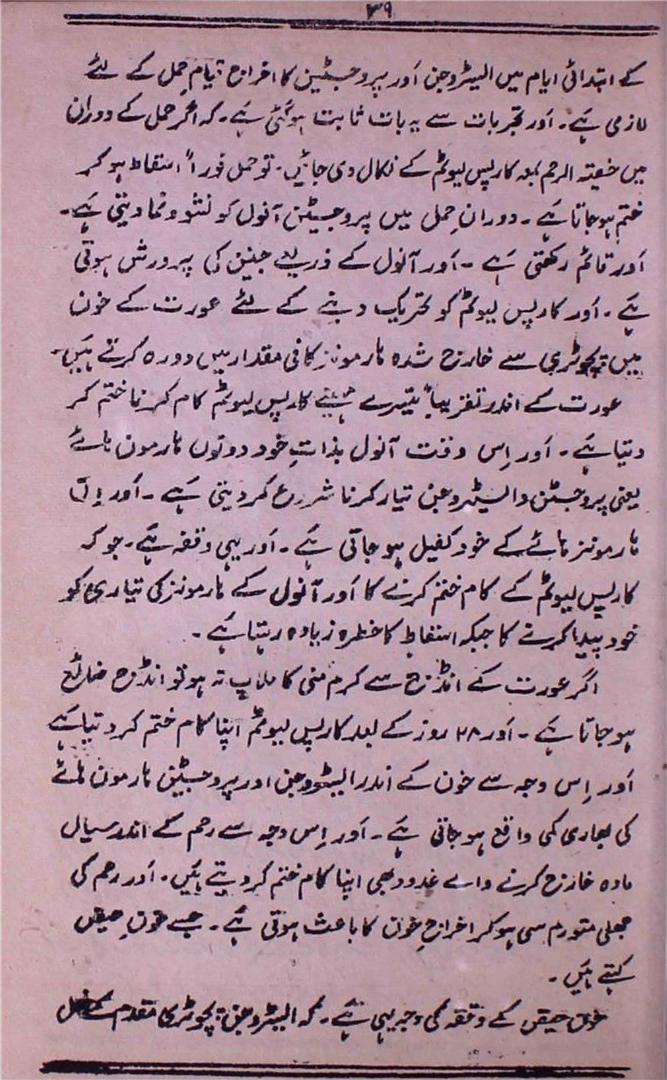 ۳۹
کے ابتدائی ایام میں الیسٹروجن اَور پروجسٹین کا اخراج قیامِ حمل کے لئے
لازمی ہَے۔ اَور تجربات سے یہ بات ثابت ہو گئی ہَے۔ کہ اگر حمل کے دوران
میں خصیتہ الرحم بمعہ کارپس لیوٹم کے نکال دی جائیں۔ تو حمل فوراً اسقاط ہو کر
ختم ہو جاتا ہَے۔ دورانِ حمل میں پروجسٹن آنول کو نشوونما دیتی ہَے۔
اَور قائم رکھتی ہَے۔ اَور آنول کے ذریعے جنین کی پرورش ہوتی
ہَے۔ اَور کارپس لیوٹم کو تحریک دینے کے لئے عورت کے خون
میں پچوٹری سے خارج شدہ ہارمونز کافی مقدار میں دورہ کرتے ہَیں۔
عورت کے اندر تقریباً تیسرے مہینے کارپس لیوٹم کام کرنا ختم کر
دیتا ہَے۔ اَور اِس وقت آنول بذاتِ خود دونوں ہارمون ہائے
یعنی پروجسٹن و الیسٹروجن تیار کرنا شروع کر دیتی ہَے۔ اَور اِن
ہارمونز ہائے کے خود کفیل ہو جاتی ہَے۔ اَور یہی وقفہ ہَے۔ جو کہ
کارپس لیوٹم کے کام ختم کرنے کا اَور آنول کے ہارمونز کی تیاری کو
خود پیدا کرنے کا جبکہ اسقاط کا خطرہ زیادہ رہتا ہَے۔
اگر عورت کے انڈنج سے کرم منی کا ملاپ نہ ہو تو انڈنج ضائع
ہو جاتا ہَے۔ اَور ۲۸ روز کے بعد کارپس لیوٹم اپنا کام ختم کر دیتا ہَے
اَور اِس وجہ سے خون کے اندر الیسٹروجن اور پروجسٹین ہارمون ہائے
کی بھاری کمی واقع ہو جاتی ہَے۔ اَور اِس وجہ سے رحم کے اندر سیال
مادہ خارج کرنے والے غدود بھی اپنا کام ختم کر دیتے ہَیں۔ اَور رحم کی
جھلی متورم سی ہو کر اخراجِ خون کا باعث ہوتی ہَے۔ جسے خونِ حیض
کہتے ہَیں۔
خونِ حیض کے وقفہ کی وجہ یہی ہَے۔ کہ الیسٹروجن پچوٹری کا مقدم